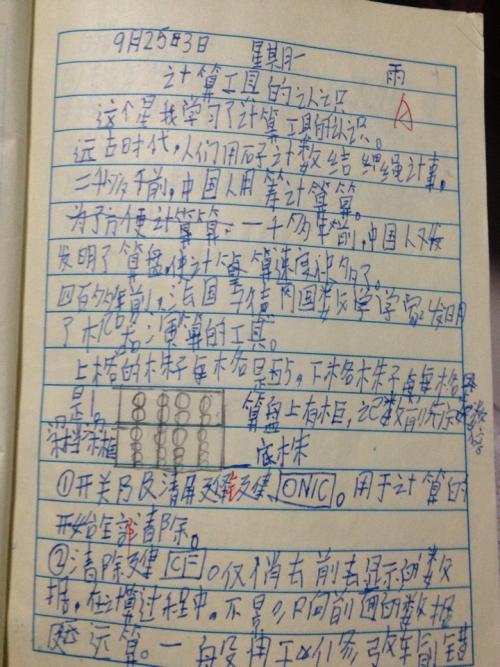 9月25日3日 星期一 雨
计算工具的认识
A
这个星我学习了计算工具的认识。
远古时代,人们用石子计数结绳计事。
二千多年前,中国人用筹计算算。
为了方便计算算,一千多年前,中国人又发
发明了算盘,使计算算速度
四百多年前,法国 数学学家发明
了 演算的工具。
上格的木朱子每格是5,下格木朱子每每格是
是1 算盘上有档,记数前先 数位。
梁 框 底木朱
①开关及及清屏键键 ON/C 。用于计算的
开始全部清除。
②清除键 CE 。仅消去前去显示的数
据,在计算过程中,不影响前面的数据
运算。一般用